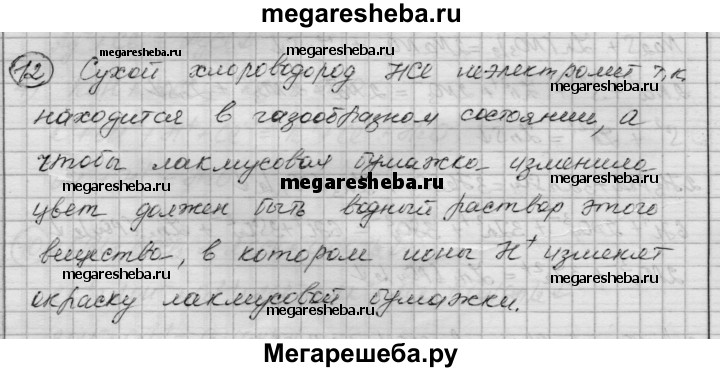 megaresheba.ru
12 Сухой хлороводород HCl неэлектролит т.к.
megaresheba.ru
megaresheba.ru
находится в газообразном состоянии, а
megaresheba.ru
чтобы лакмусовая бумажка изменила
megaresheba.ru
megaresheba.ru
megaresheba.ru
цвет должен быть водный раствор этого
вещества, в котором ионы H⁺ изменят
megaresheba.ru
megaresheba.ru
окраску лакмусовой бумажки.
Мегарешеба.ру